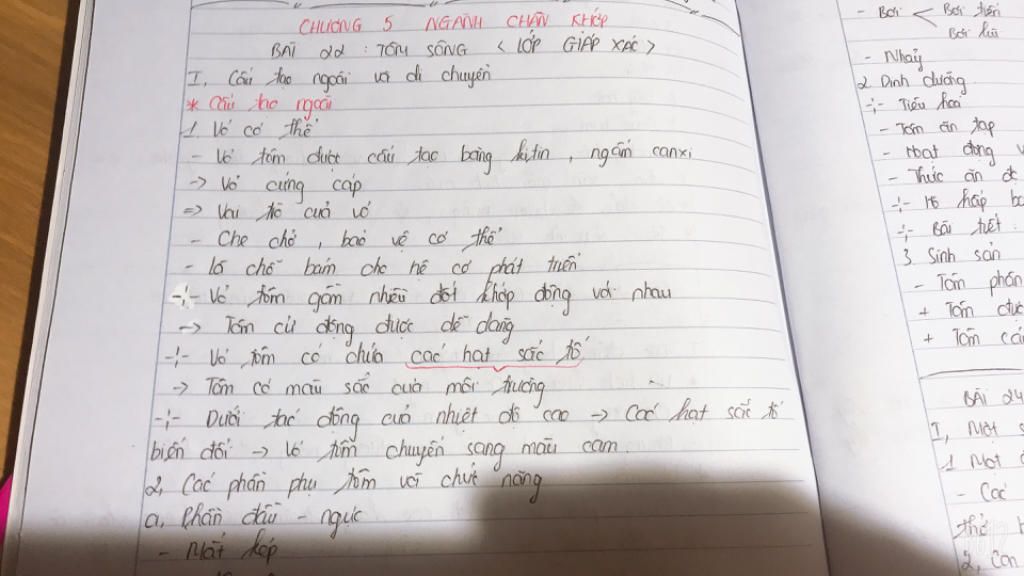 CHƯƠNG 5 NGÀNH CHÂN KHỚP
BÀI 22 : TÔM SÔNG < LỚP GIÁP XÁC >
I, Cấu tạo ngoài và di chuyển
* Cấu tạo ngoài
1. Vỏ cơ thể
- Vỏ tôm được cấu tạo bằng kitin , ngấm canxi
-> Vỏ cứng cáp
=> Vai tò của vỏ
- Che chở , bảo vệ cơ thể
- là chỗ bám cho hệ cơ phát triển
-:- Vỏ tôm gồm nhiều đốt khớp động với nhau
-> Tôm cử động được dễ dàng
-:- Vỏ tôm có chứa các hạt sắc tố
-> Tôm có màu sắc của môi trường
-:- Dưới tác động của nhiệt độ cao -> Các hạt sắc tố
biến đổi -> Vỏ tôm chuyển sang màu cam
2, Các phần phụ tôm với chức năng
a, Phần đầu - ngực
- Mắt kép
- Bơi < Bơi tiến
Bơi lùi
- Nhảy
2. Dinh dưỡng
-:- Tiêu hoá
- Tôm ăn tạp
- Hoạt động
- Thức ăn
-:- Hô hấp
-:- Bài tiết :
3. Sinh sản
- Tôm phân
+ Tôm đực
+ Tôm cái
BÀI 24
I, Một
1 Một
- Các
2, Con